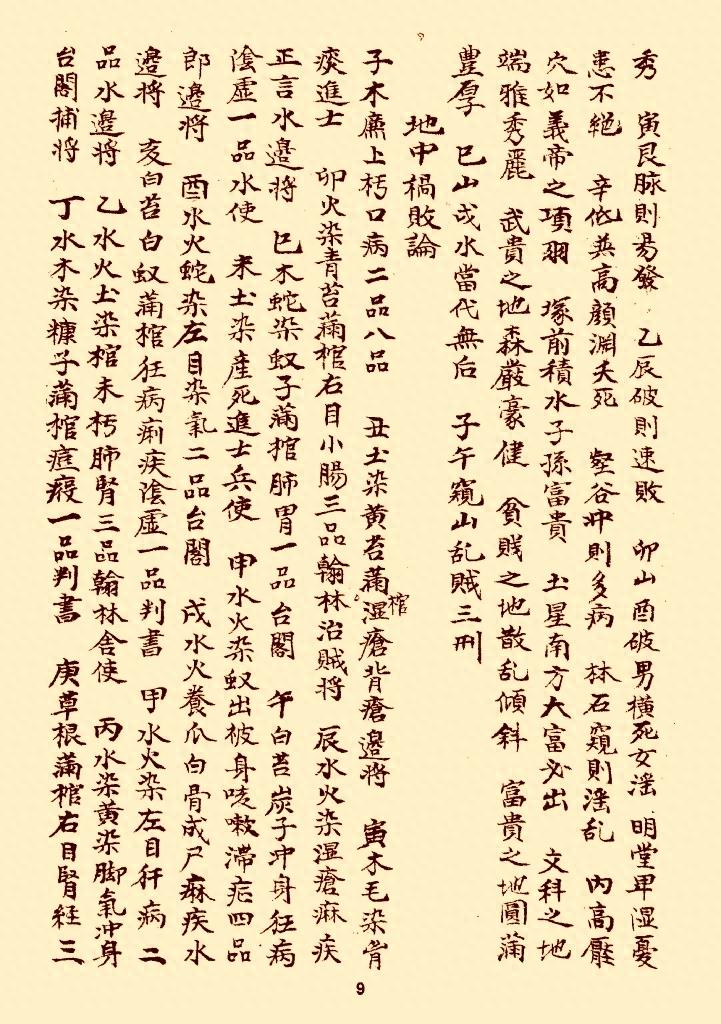 秀　寅艮脉則易發　乙辰破則速敗　卯山酉破男横死女滛　明堂卑湿憂
患不絶　辛低巽高顔渊夭死　壑谷冲則多病　林石窺則滛乱　内高壓
穴如義帝之項羽　塚前積水子孫富貴　土星南方大富必出　文科之地
端雅秀麗　武貴之地森嚴豪健　貧賎之地散乱傾斜　富貴之地圓滿
豊厚　巳山戌水當代無后　子午窺山乱賊三刑
地中禍敗論
子木廉上朽口病二品八品　丑土染黄苔滿棺湿瘡背瘡邊将　寅木毛染背
痰進士　卯火染青苔滿棺右目小腸三品翰林治賊将　辰水火染湿瘡痳疾
正言水邊将　巳木蛇染蚁子滿棺肺胃一品台閣　午白苔炭子冲身狂病
陰虚一品水使　未土染産死進士兵使　申水火染蚁出彼身咳嗽滞疟四品
郎邊将　酉水火蛇染左目染氣二品台閣　戌水火養瓜白骨成尸痳疾水
邊将　亥白苔白蚁滿棺狂病痢疾陰虚一品判書　甲水火染左目肝病二
品水邊将　乙水火土染棺未朽肺腎三品翰林舍使　丙水染黄染脚氣冲身
台閣捕将　丁水木染糠子滿棺疽瘢一品判書　庚草根滿棺右目腎経三
9